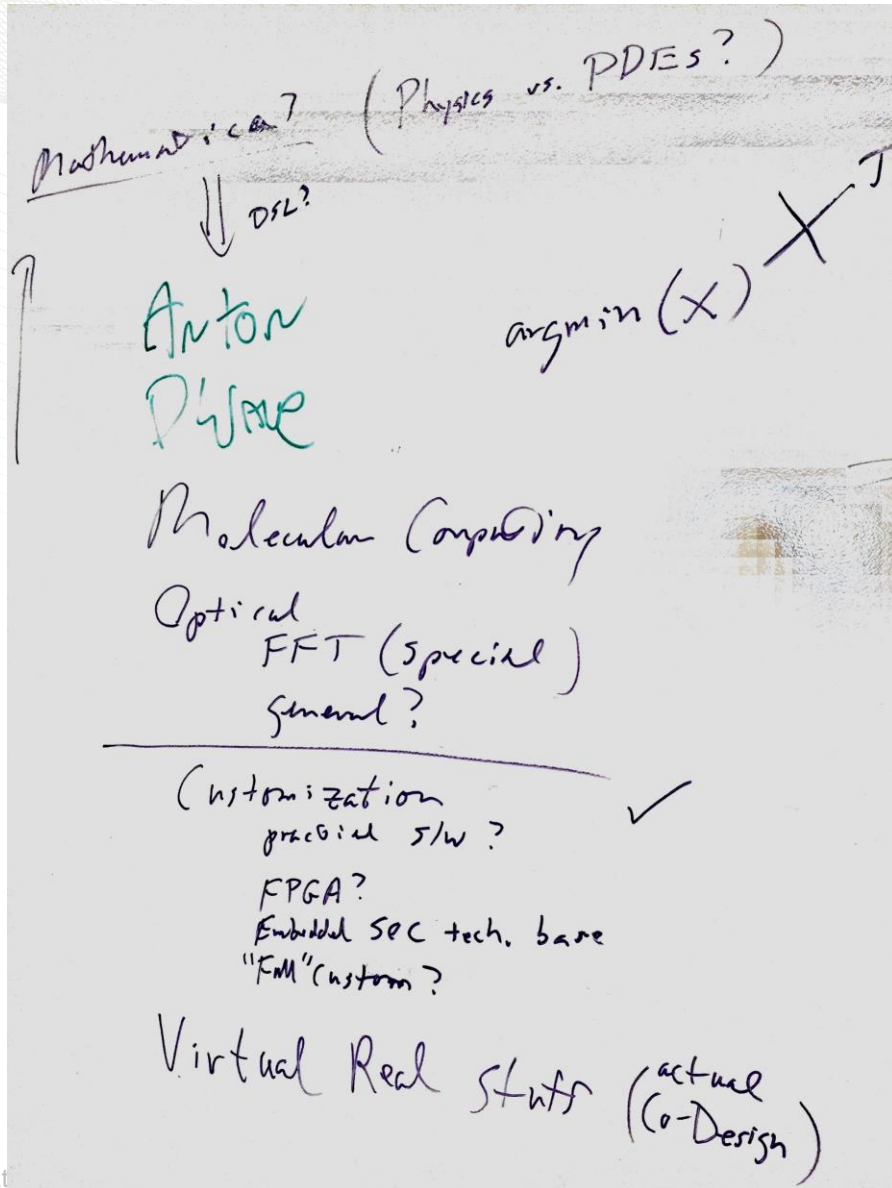 (Physics vs. PDEs?)
Mathematica?
DSL?
Anton
D'Wave
argmin(X)
Molecular Computing
Optical
FFT (special)
general?
Customization ✓
practical s/w?
FPGA?
Embedded SOC tech. base
"Full" Custom?
Virtual Real Stuff (actual
Co-Design)